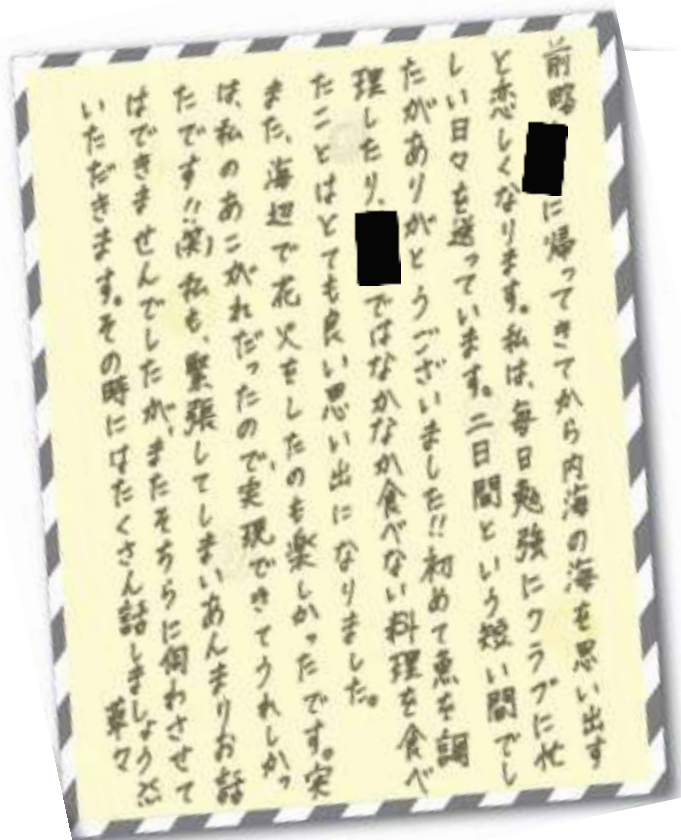 前略 に帰ってきてから内海の海を思い出す
と恋しくなります。私は、毎日勉強にクラブに忙
しい日々を送っています。二日間という短い間でし
たがありがとうございました!!初めて魚を調
理したり、 ではなかなか食べない料理を食べ
たことはとても良い思い出になりました。
また、海辺で花火をしたのも楽しかったです。実
は、私のあこがれだったので、実現できてうれしかっ
たです!!(笑)私も、緊張してしまいあんまりお話
はできませんでしたが、またそちらに伺わさせて
いただきます。その時にはたくさん話しましょう
草々